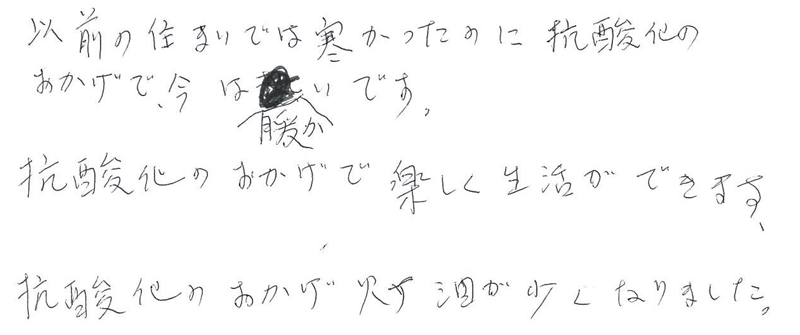 以前の住まいでは寒かったのに抗酸化の
おかげで、今は暖かいです。
抗酸化のおかげで楽しく生活ができます、
抗酸化のおかげ が少くなりました。